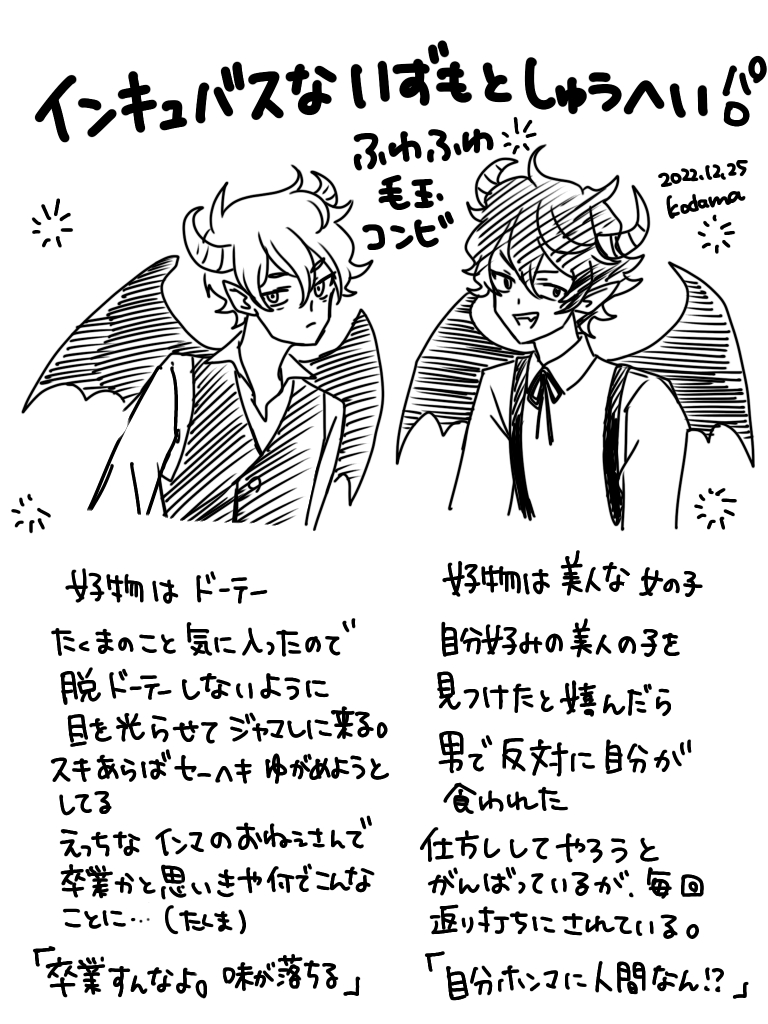 インキュバスないずもとしゅうへいパロ
ふわふわ
毛玉
コンビ
2022.12.25
kodama
好物はドーテー
たくまのこと気に入ったので
脱ドーテーしないように
目を光らせてジャマしに来る。
スキあらばセーヘキゆがめようと
してる
えっちなインマのおねぇさんで
卒業かと思いきや何でこんな
ことに…(たくま)
「卒業すんなよ。味が落ちる」
好物は美人な女の子
自分好みの美人の子を
見つけたと嬉んだら
男で反対に自分が
食われた
仕方ししてやろうと
がんばっているが、毎回
返り打ちにされている。
「自分ホンマに人間なん!?」